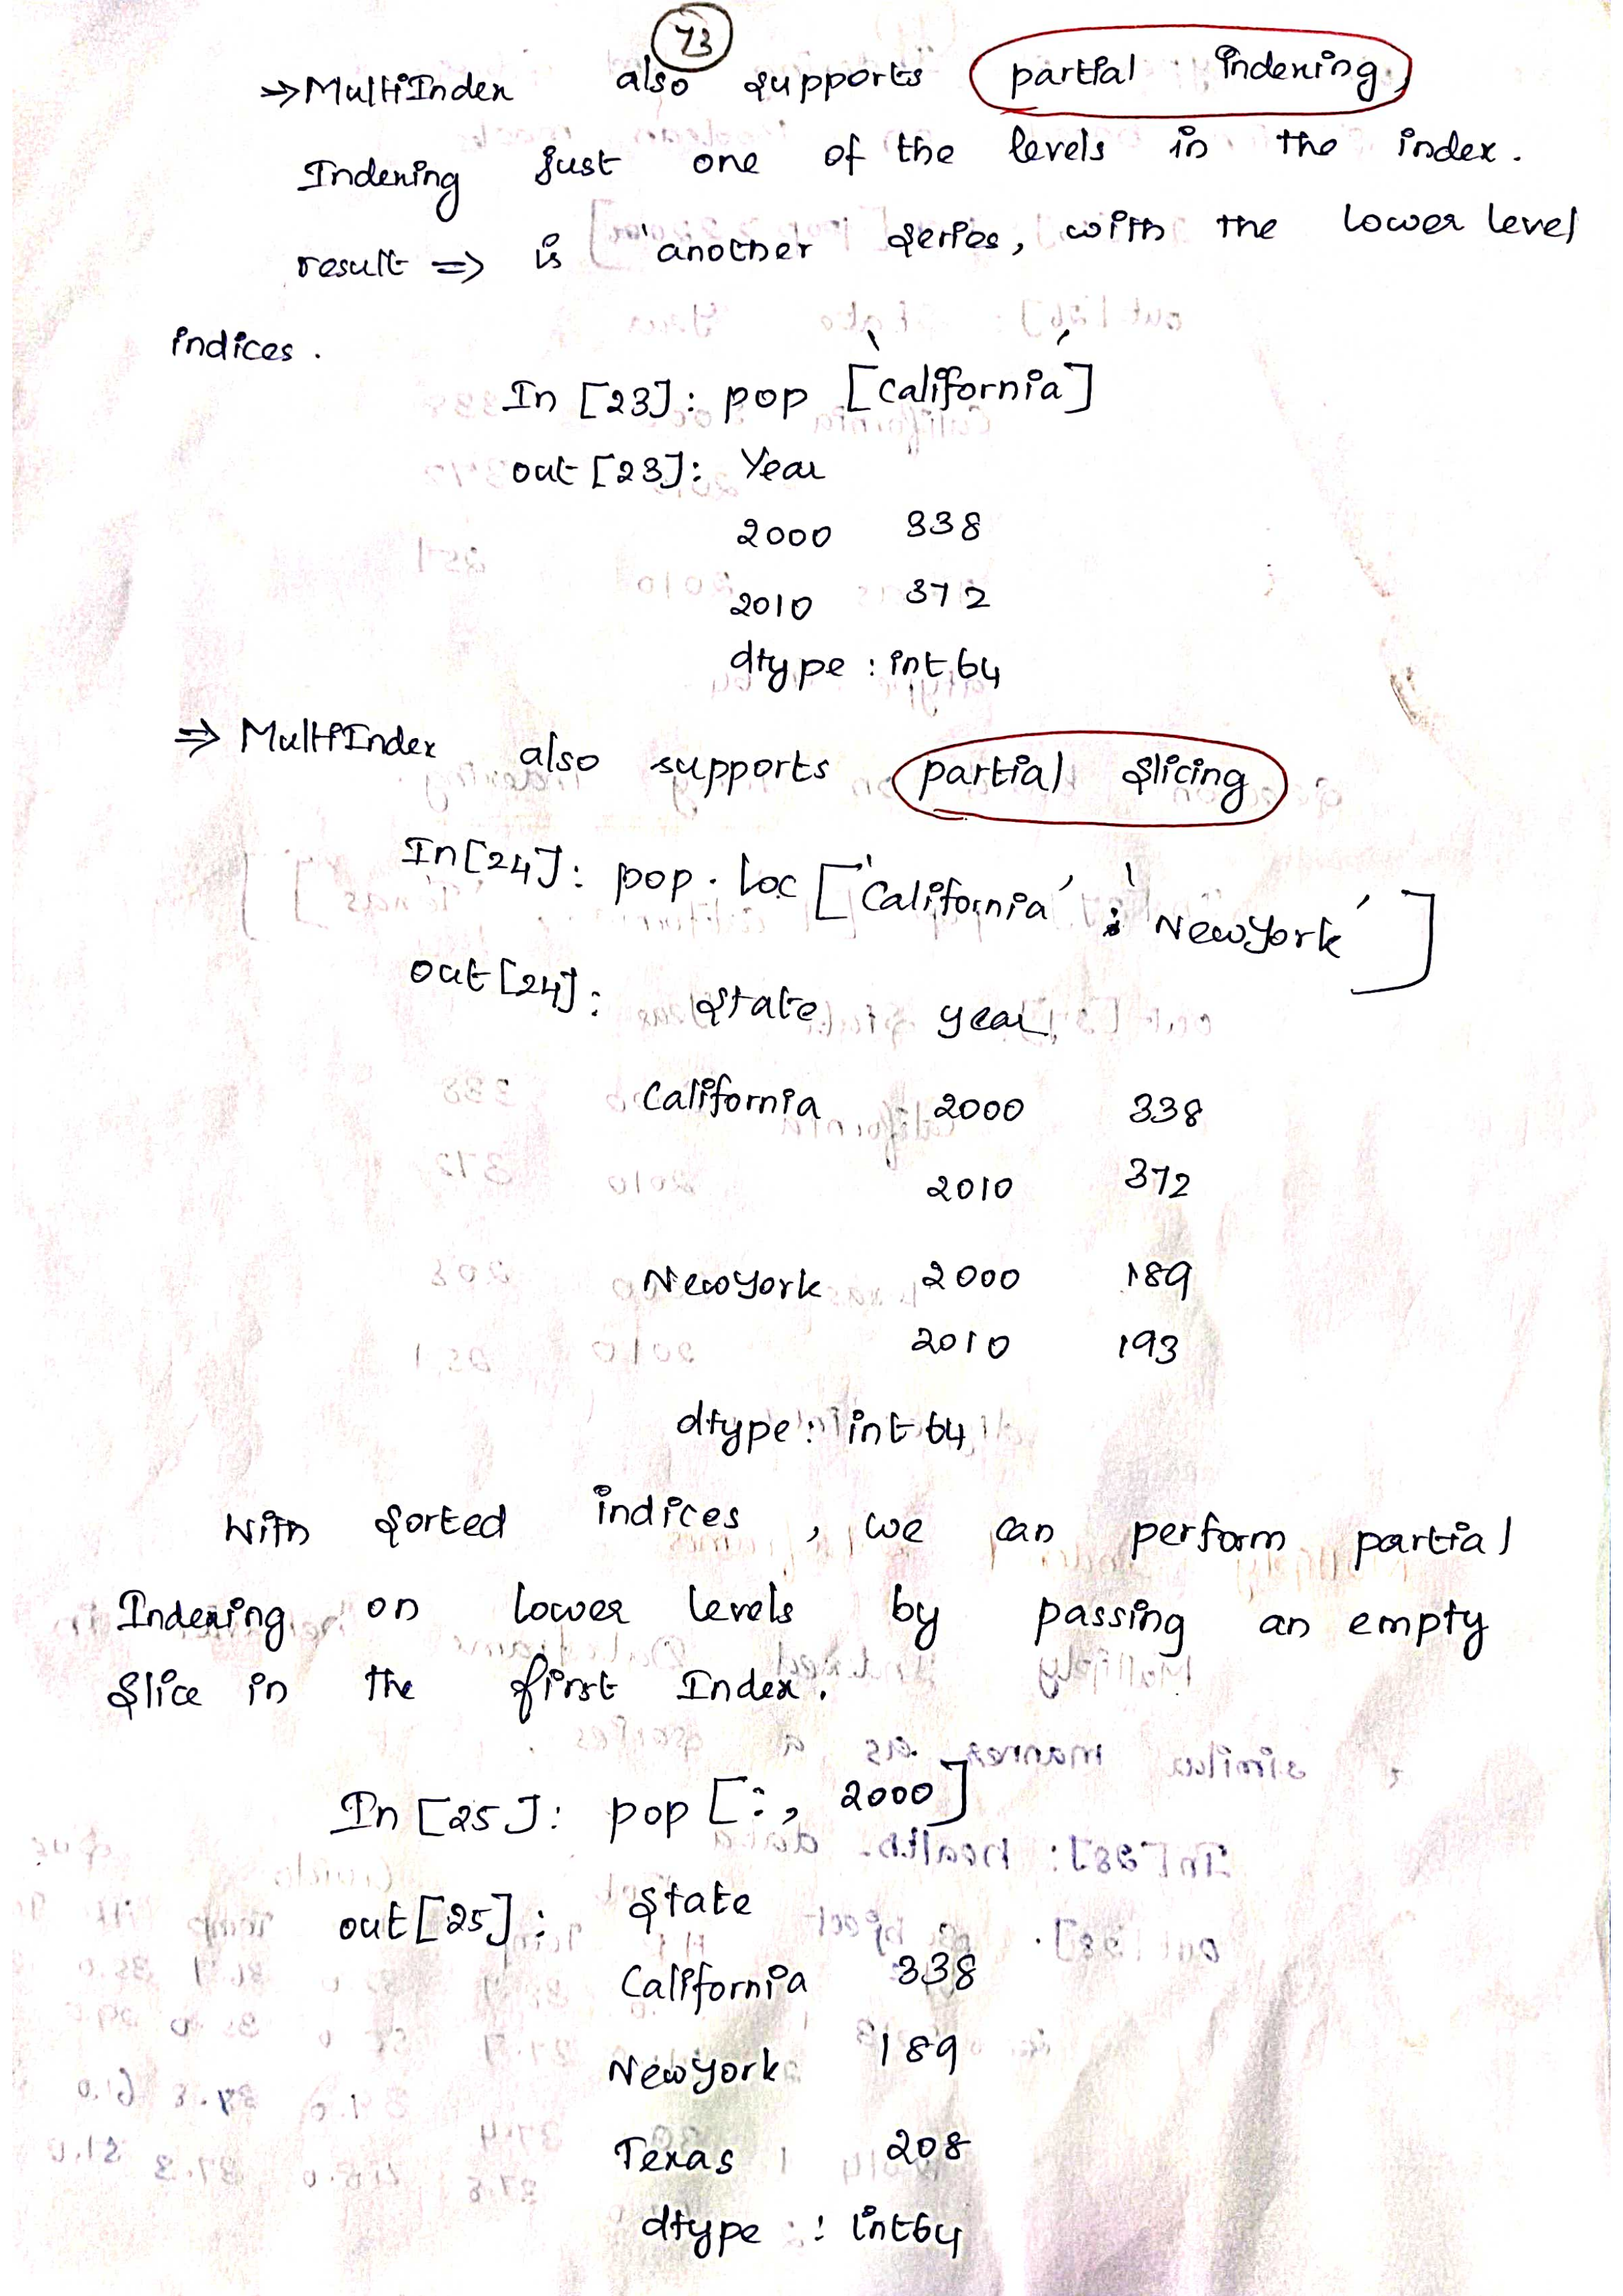 73
⇒ MultiIndex also supports partial Indexing,
Indexing just one of the levels in the index.
result ⇒ is another series, with the lower level
indices.
In [23]: pop ['California']
out [23]: Year
2000 338
2010 372
dtype : int 64
⇒ MultiIndex also supports partial slicing
In[24]: pop . loc ['California' : 'NewYork']
out [24]: State year
California 2000 338
2010 372
NewYork 2000 189
2010 193
dtype : int 64
With sorted indices , we can perform partial
Indexing on lower levels by passing an empty
slice in the first Index.
In [25]: pop [:, 2000]
out [25] : State
California 338
NewYork 189
Texas 208
dtype : int64